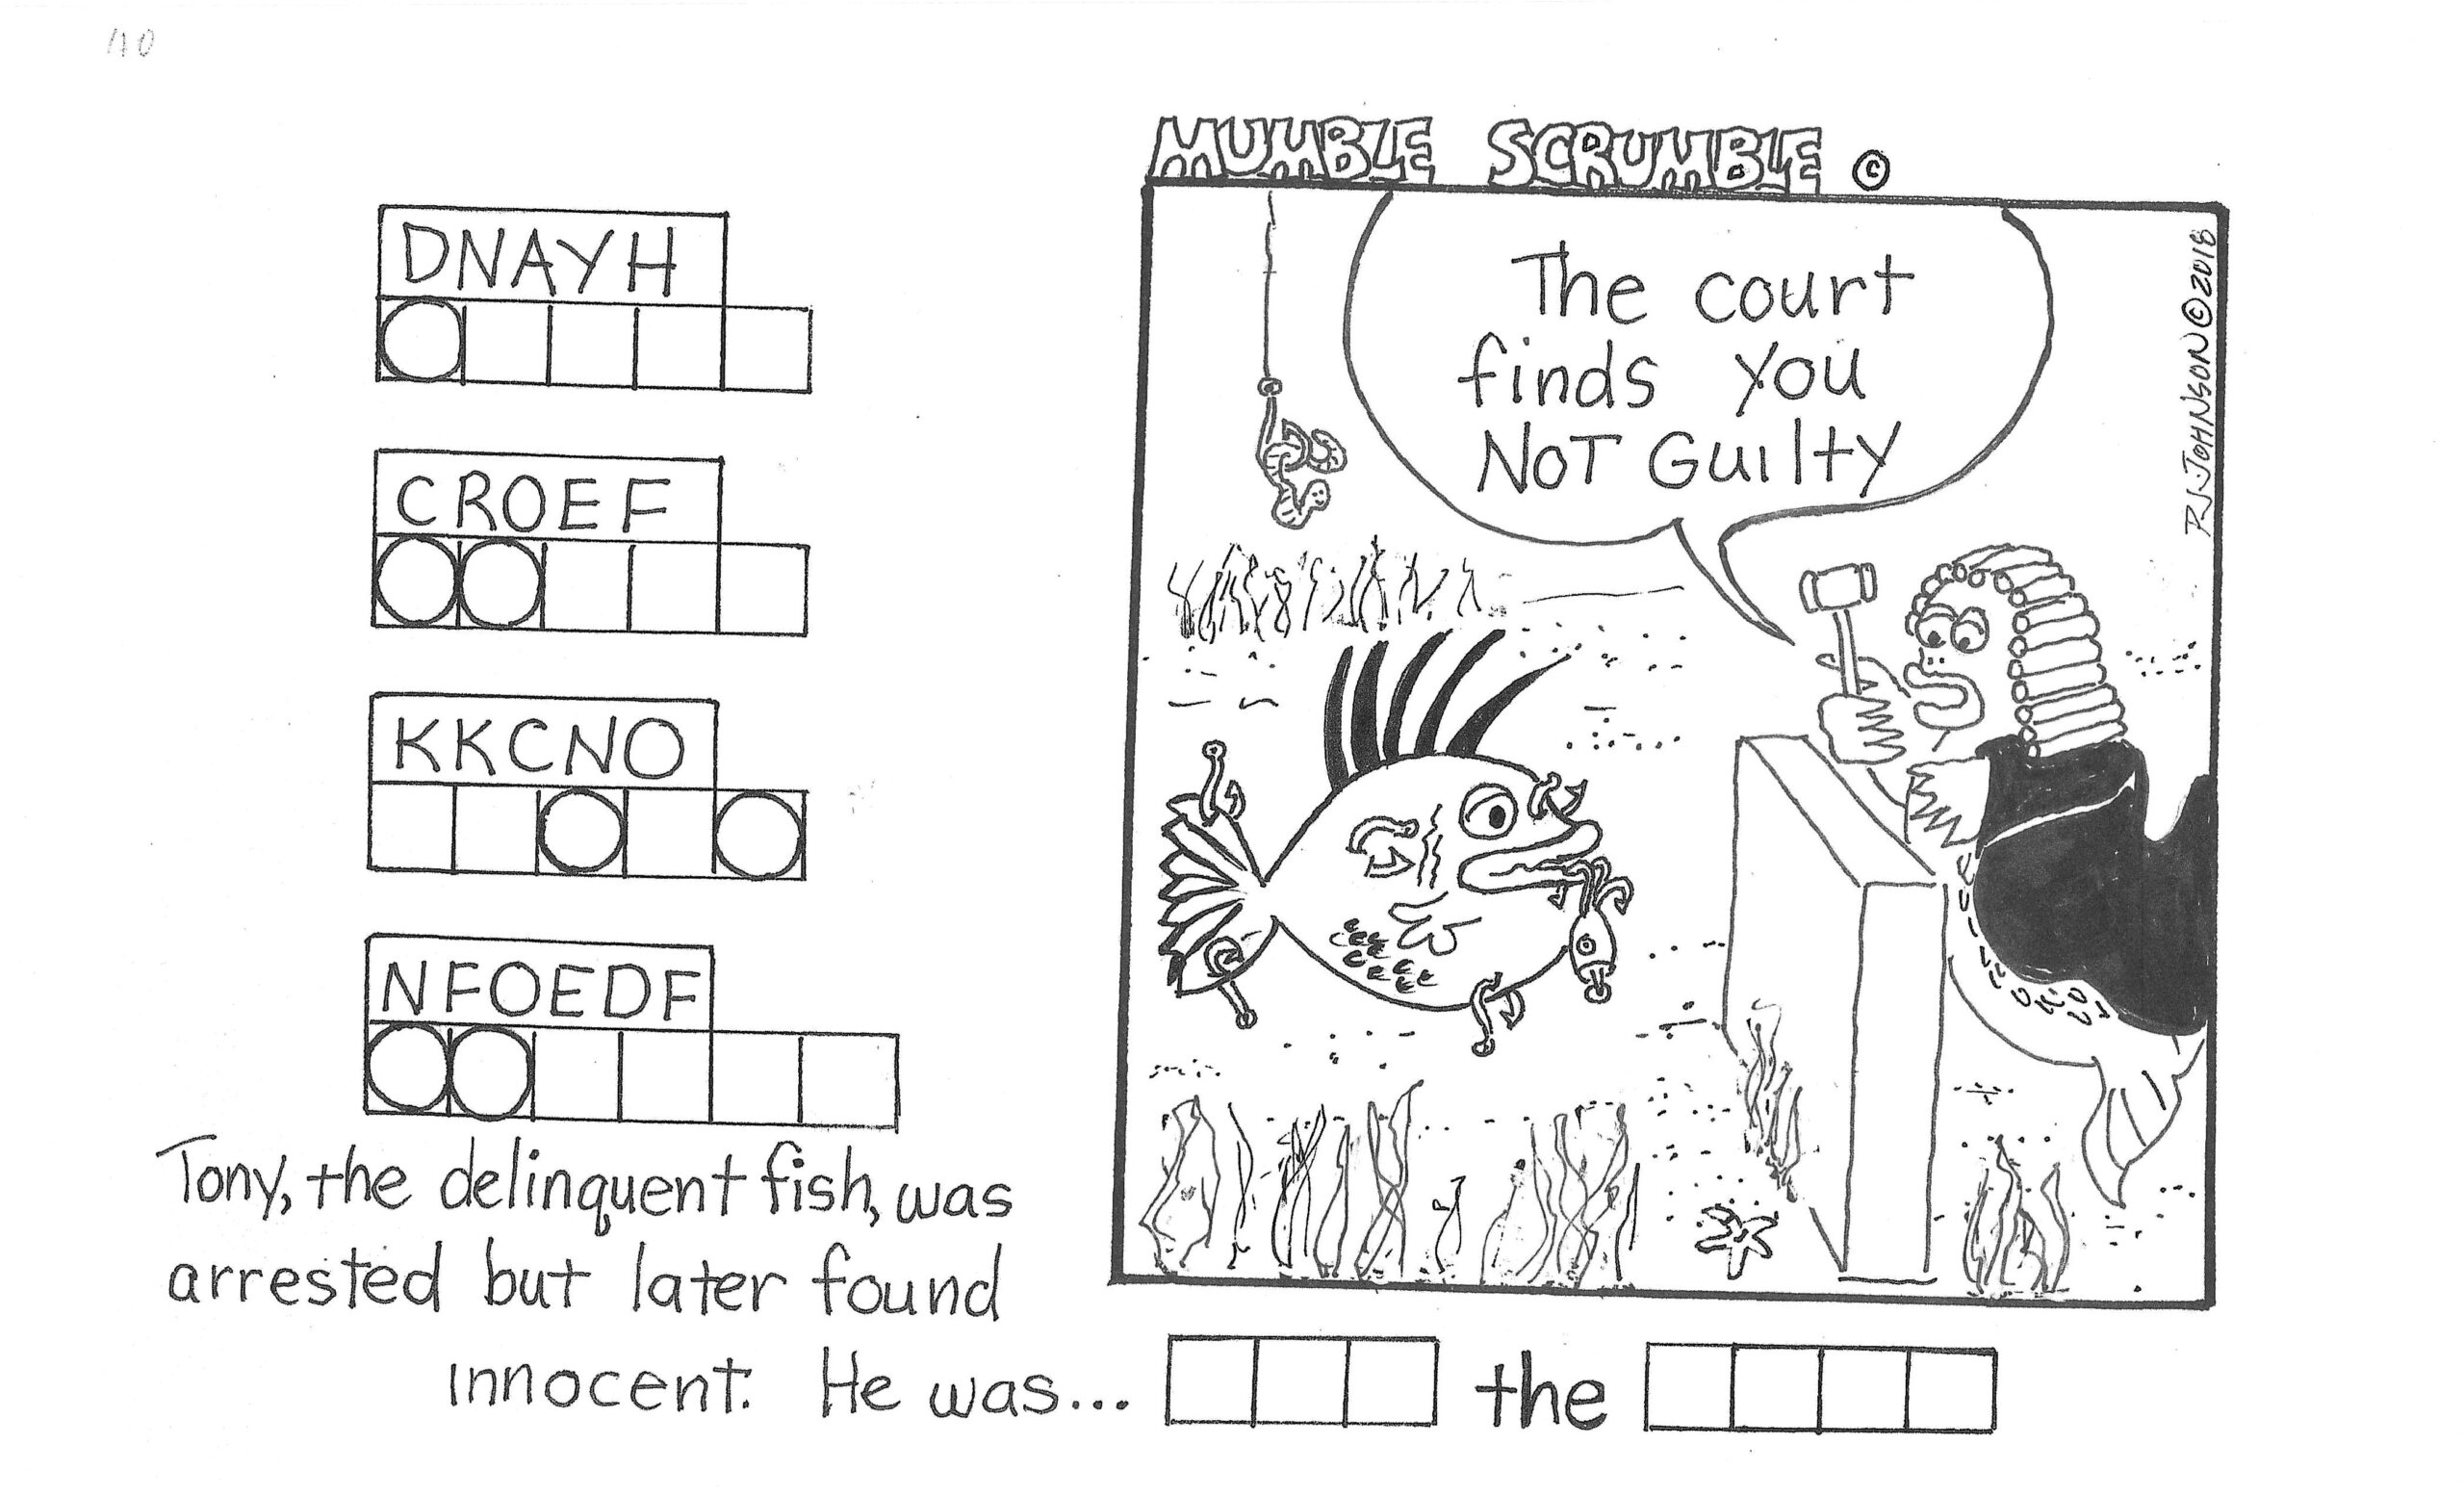 110
MUMBLE SCRUMBLE ©
DNAYH
CROEF
KKCNO
NFOEDF
Tony, the delinquent fish, was
arrested but later found
innocent. He was... the
The court
finds you
NOT Guilty
RJJOHNSON©2018